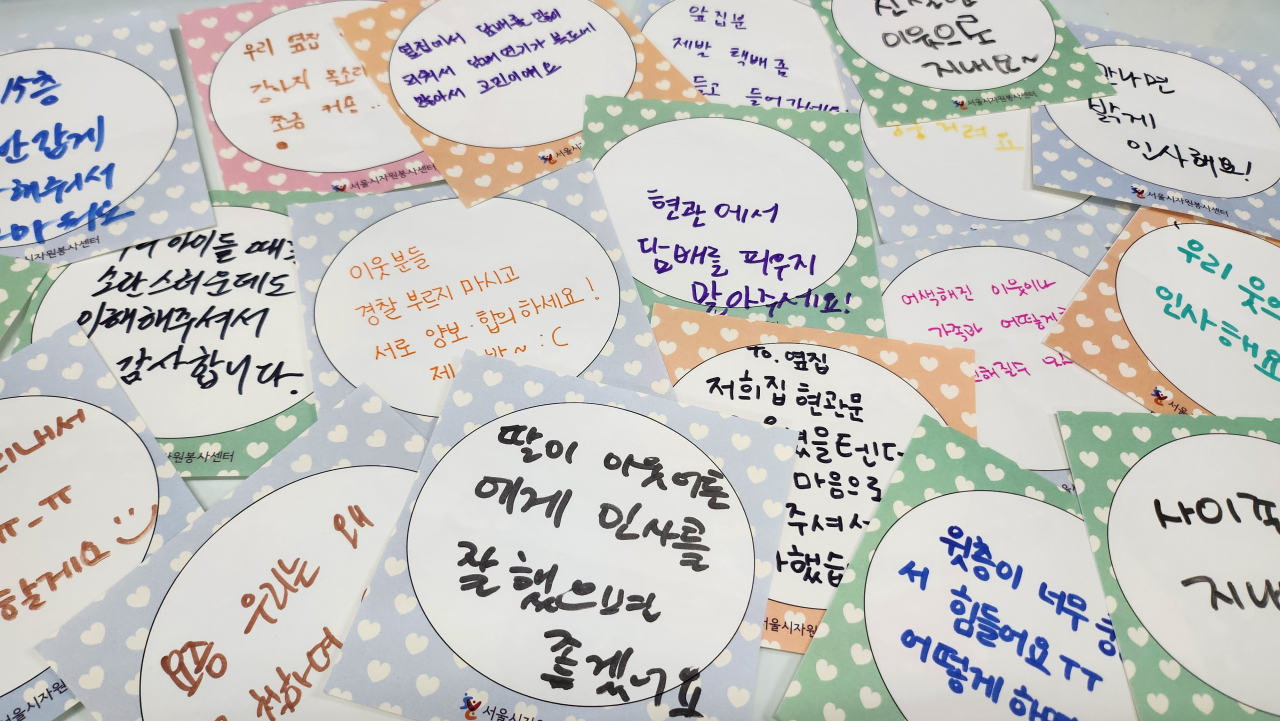 15층
반갑게
해줘서
우리 옆집
강아지 목소리
쪼금 커용..
서울시자원봉사센터
옆집에서 담배를 많이
펴서 담배 연기가
많아서 고민이에요
앞집분
제발 택배 좀
들고 들어가세요
이웃으로
지내요~
서울시자원봉사센터
밝게
인사해요!
서울시자원봉사센터
아이들 때
소란스러운데도
이해해주셔서
감사합니다.
자원봉사센터
이웃분들
경찰 부르지 마시고
서로 양보·합의하세요!
제
~ :C
현관에서
담배를 피우지
말아주세요!
To. 옆집
저희집 현관문
을텐데
마음으로
주셔서
했습
서울시자원
어색해진 이웃이나
가족과 어떻게
우리 웃으
인사해요
지내서
ㅠ-ㅠ
할게요
서울시자원
요즘 우리는 왜
딸이 이웃어른
에게 인사를
잘 했으면
좋겠어요
서울시자원
윗층이 너무 쿵
서 힘들어요 ㅜㅜ
어떻게 하면
사이좋
지내